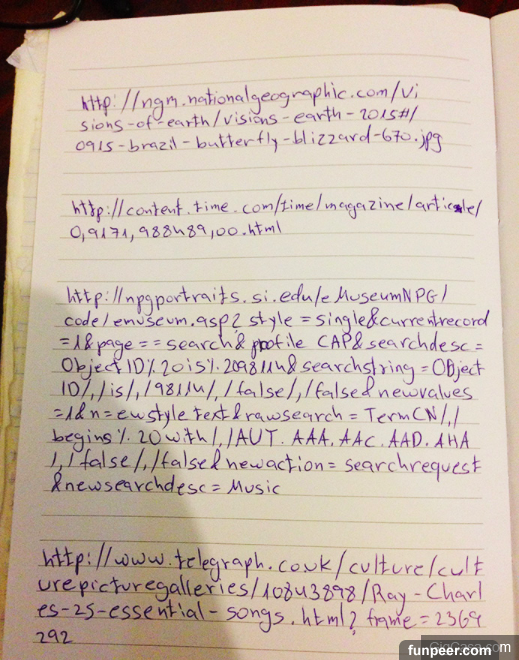 http://ngm.nationalgeographic.com/vi
sions-of-earth/visions-earth-2015#/
0915-brazil-butterfly-blizzard-670.jpg
http://content.time.com/time/magazine/article/
0,9171,988489,00.html
http://npgportraits.si.edu/eMuseumNPG/
code/emuseum.asp?style=single&currentrecord
=1&page==search&profile CAP&searchdesc=
Object ID%20is%2098114&searchstring=OBject
ID/,/is/,/98114/,/false/,/false&newvalues
=1&n=ewstyle text&rawsearch=TermCN/,/
begins%20with/,/AUT.AAA.AAC.AAD.AHA
/,/false/,/false&newaction=searchrequest
&newsearchdesc=Music
http://www.telegraph.co.uk/culture/cult
urepicturegalleries/10843898/Ray-Charl
es-25-essential-songs.html?frame=2369
292
funpeer.com